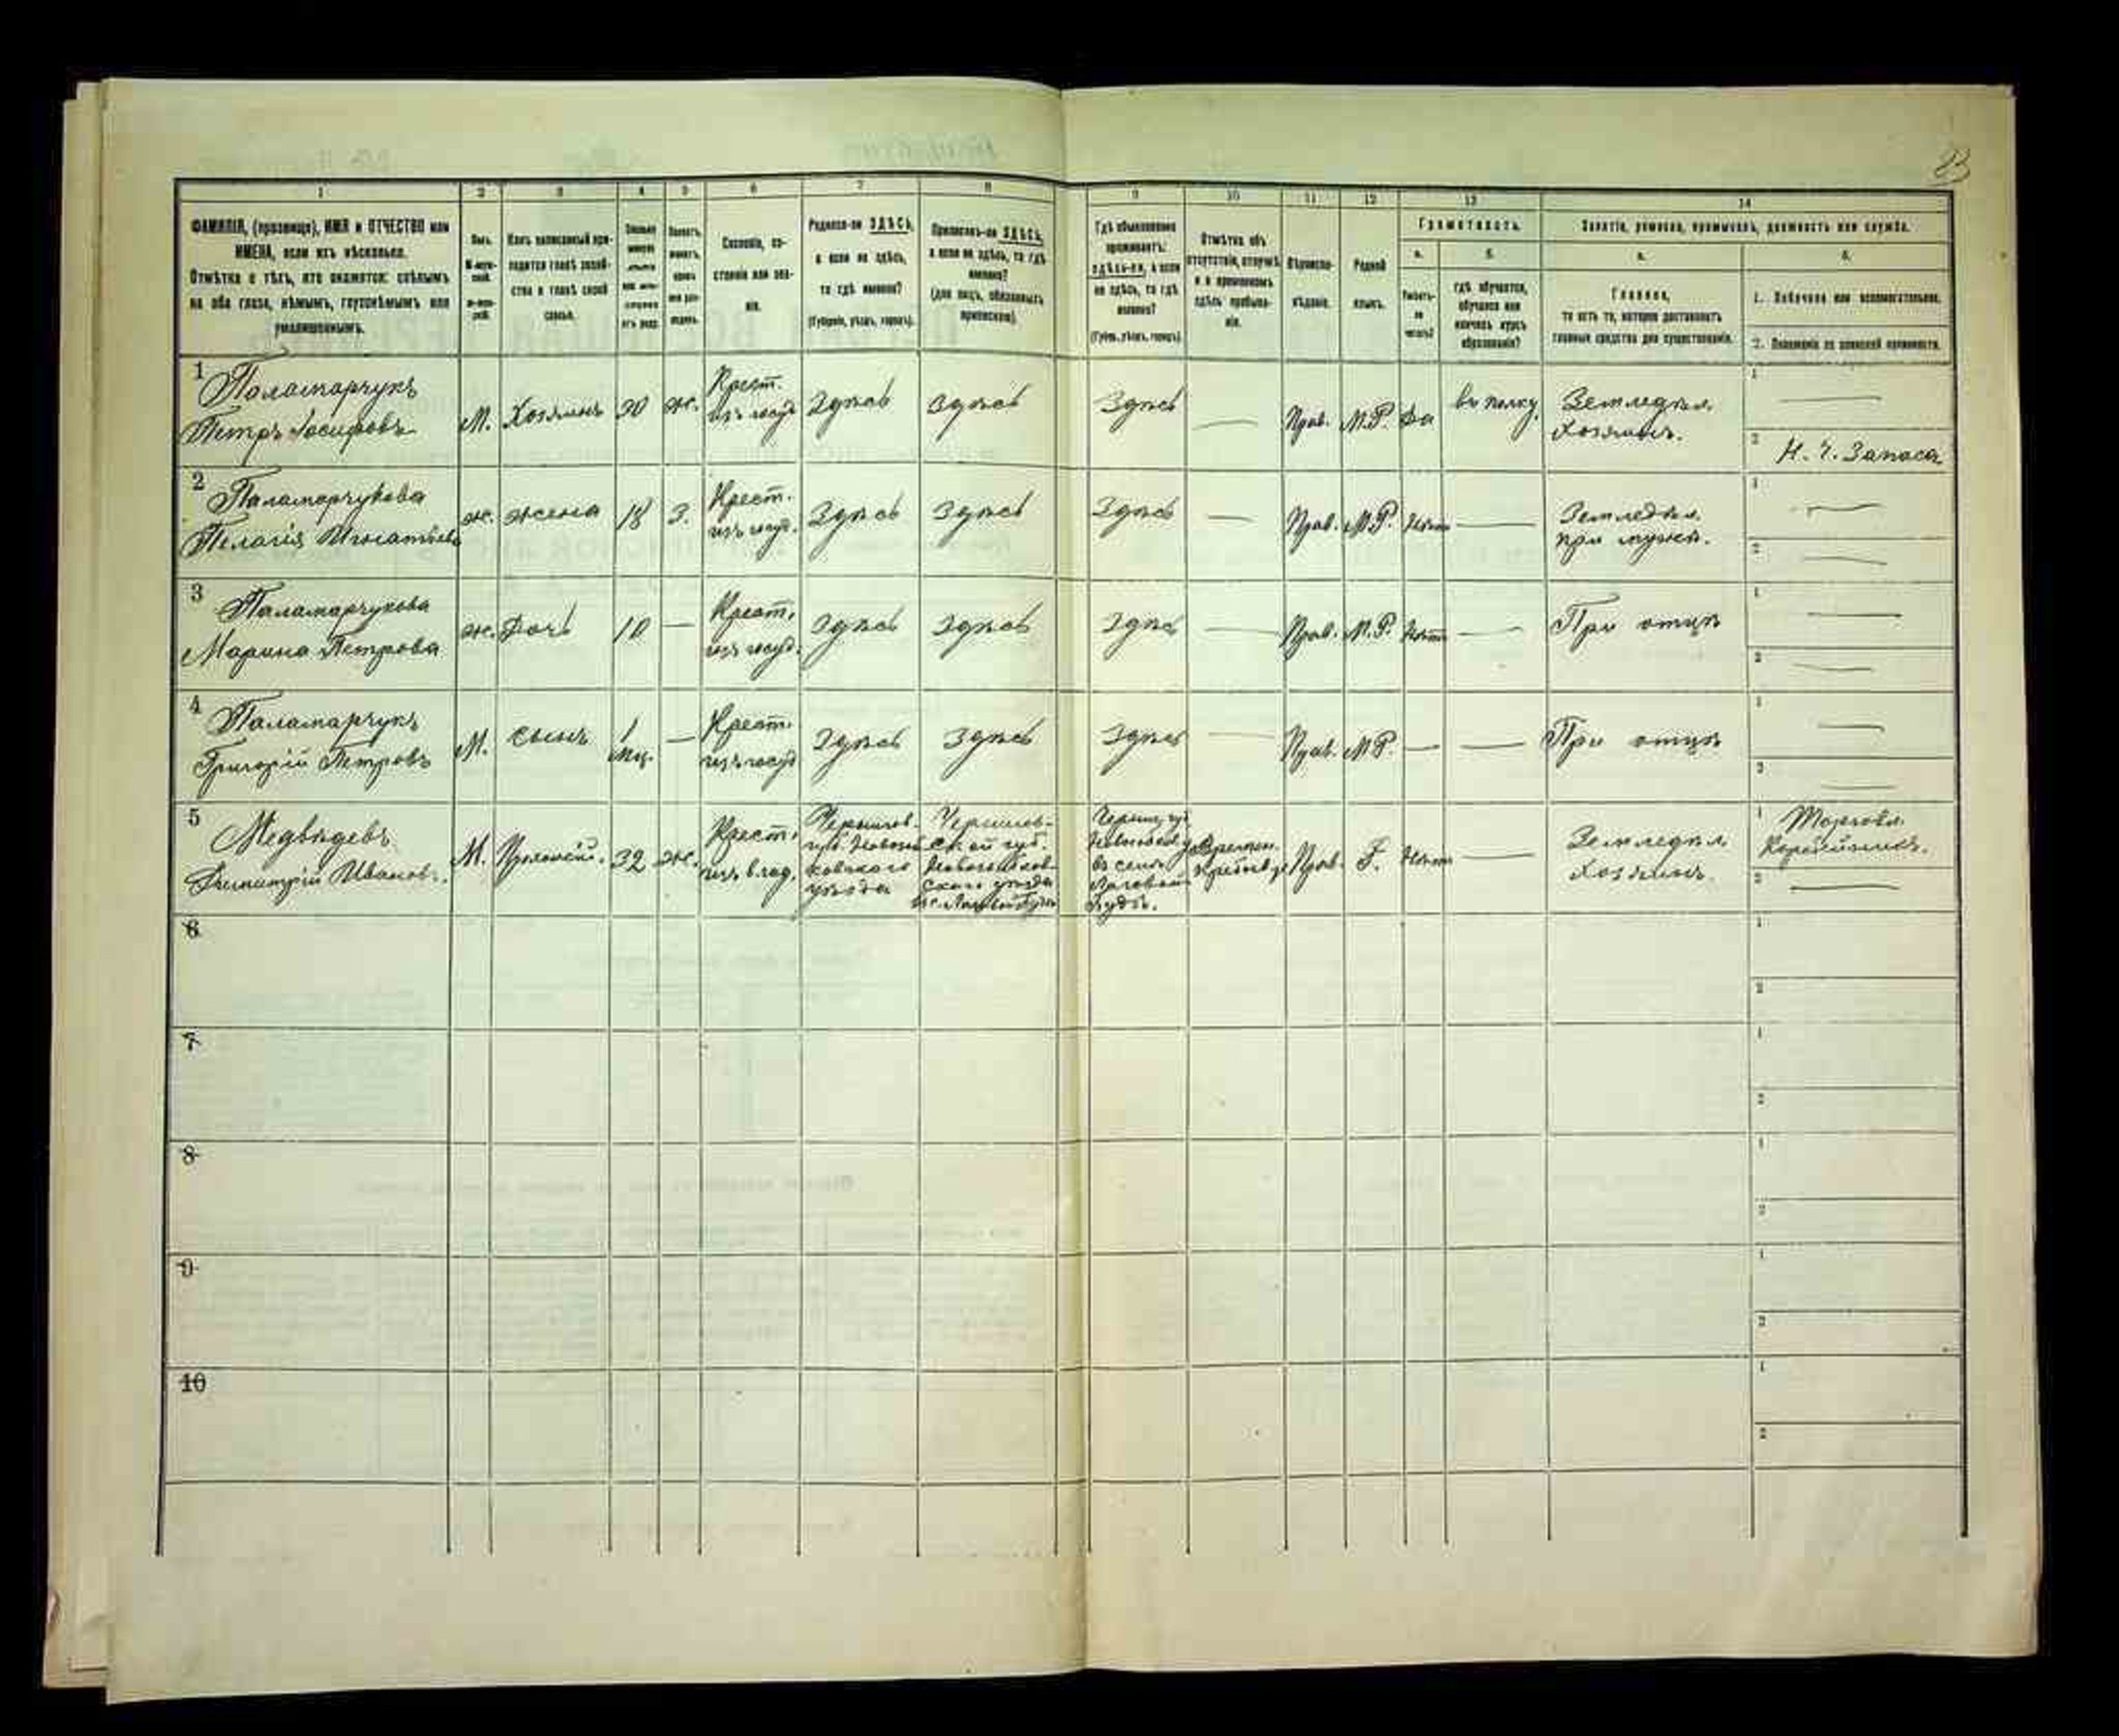 23
1 2 3 4 5 6 7 8 9 10 11 12 13 14
ФАМИЛІЯ, (прозвище), ИМЯ и ОТЧЕСТВО или
ИМЕНА, если ихъ нѣсколько.
Отмѣтка о тѣхъ, кто окажется: слѣпымъ
на оба глаза, нѣмымъ, глухонѣмымъ или
умалишеннымъ.
Полъ.
М-муж-
ской.
ж-жен-
скій.
Какъ записанный при-
ходится главѣ хозяй-
ства и главѣ своей
семьи.
Сколько
минуло
лѣтъ
или мѣся-
цевъ
отъ роду.
Холостъ,
женатъ,
вдовъ
или раз-
веденъ.
Сословіе, со-
стояніе или зва-
ніе.
Родился-ли ЗДѢСЬ,
а если не здѣсь,
то гдѣ именно?
(Губернія, уѣздъ, городъ).
Приписанъ-ли ЗДѢСЬ,
а если не здѣсь, то гдѣ
именно?
(для лицъ, обязанныхъ
припискою).
Гдѣ обыкновенно
проживаетъ:
здѣсь-ли, а если
не здѣсь, то гдѣ
именно?
(Губер., уѣздъ, городъ).
Отмѣтка объ
отсутствіи, отлучкѣ
и о временномъ
здѣсь пребыва-
ніи.
Вѣроиспо-
вѣданіе.
Родной
языкъ.
Грамотность.
а.
Умѣетъ-
ли
читать?
б.
гдѣ обучается,
обучался или
кончилъ курсъ
образованія?
Занятіе, ремесло, промыселъ, должность или служба.
а.
Главное,
то есть то, которое доставляетъ
главныя средства для существованія.
б.
1. Побочное или вспомогательное.
2. Положеніе по воинской повинности.
1
Паламарчукъ
Петръ Іосифовъ
М.
Хозяинъ
30
ж.
Крест.
изъ госуд
Здѣсь
Здѣсь
Здѣсь
—
Прав.
М.Р.
Да
въ полку
Земледѣл.
хозяинъ.
1 —
2 Н. Ч. Запаса
2
Паламарчукова
Пелагія Игнатьева
ж.
жена
18
З.
Крест.
изъ госуд.
Здѣсь
Здѣсь
Здѣсь
—
Прав.
М.Р.
Нѣтъ
—
Земледѣл.
при мужѣ.
1 —
2 —
3
Паламарчукова
Марина Петрова
ж.
Дочь
10
—
Крест.
изъ госуд.
Здѣсь
Здѣсь
Здѣс
—
Прав.
М.Р.
Нѣтъ
—
При отцѣ
1 —
2 —
4
Паламарчукъ
Григорій Петровъ
М.
сынъ
1
мц.
—
Крест.
изъ госуд
Здѣсь
Здѣсь
Здѣс
—
Прав.
М.Р.
—
—
При отцѣ
1 —
2 —
5
Медвѣдевъ
Димитрій Ивановъ.
М.
32
ж.
Крест.
изъ влад.
Чернигов.
губ.
уѣзда
Чернигов-
ской губ.
уѣзда
въ селѣ
Буда.
Времен.
Прав.
Нѣтъ
—
Земледѣл
хозяинъ.
1 Торговл.
2 —
6
1
2
7
1
2
8
1
2
9
1
2
10
1
2